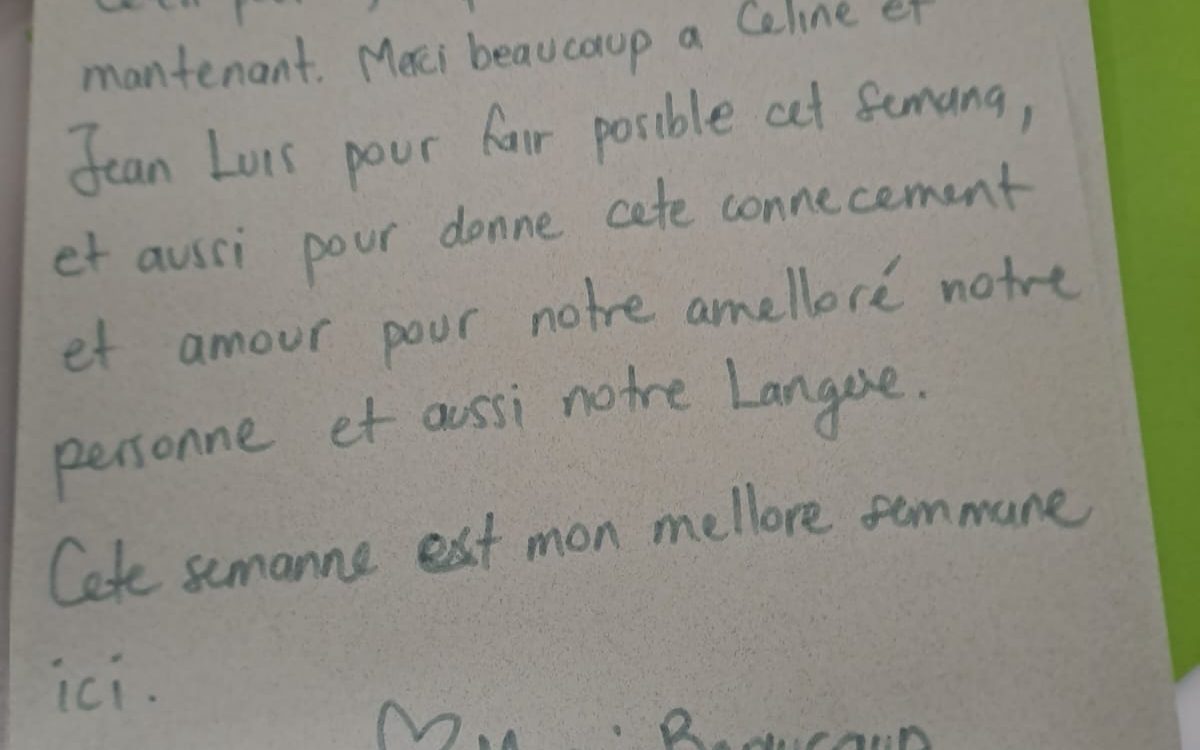 mantenant. Merci beaucoup a Celine et
Jean Luis pour fair posible cet semana,
et aussi pour donne cete connecement
et amour pour notre amelloré notre
personne et aussi notre Langeue.
Cete semanne est mon mellore semmane
ici.
Beaucoup